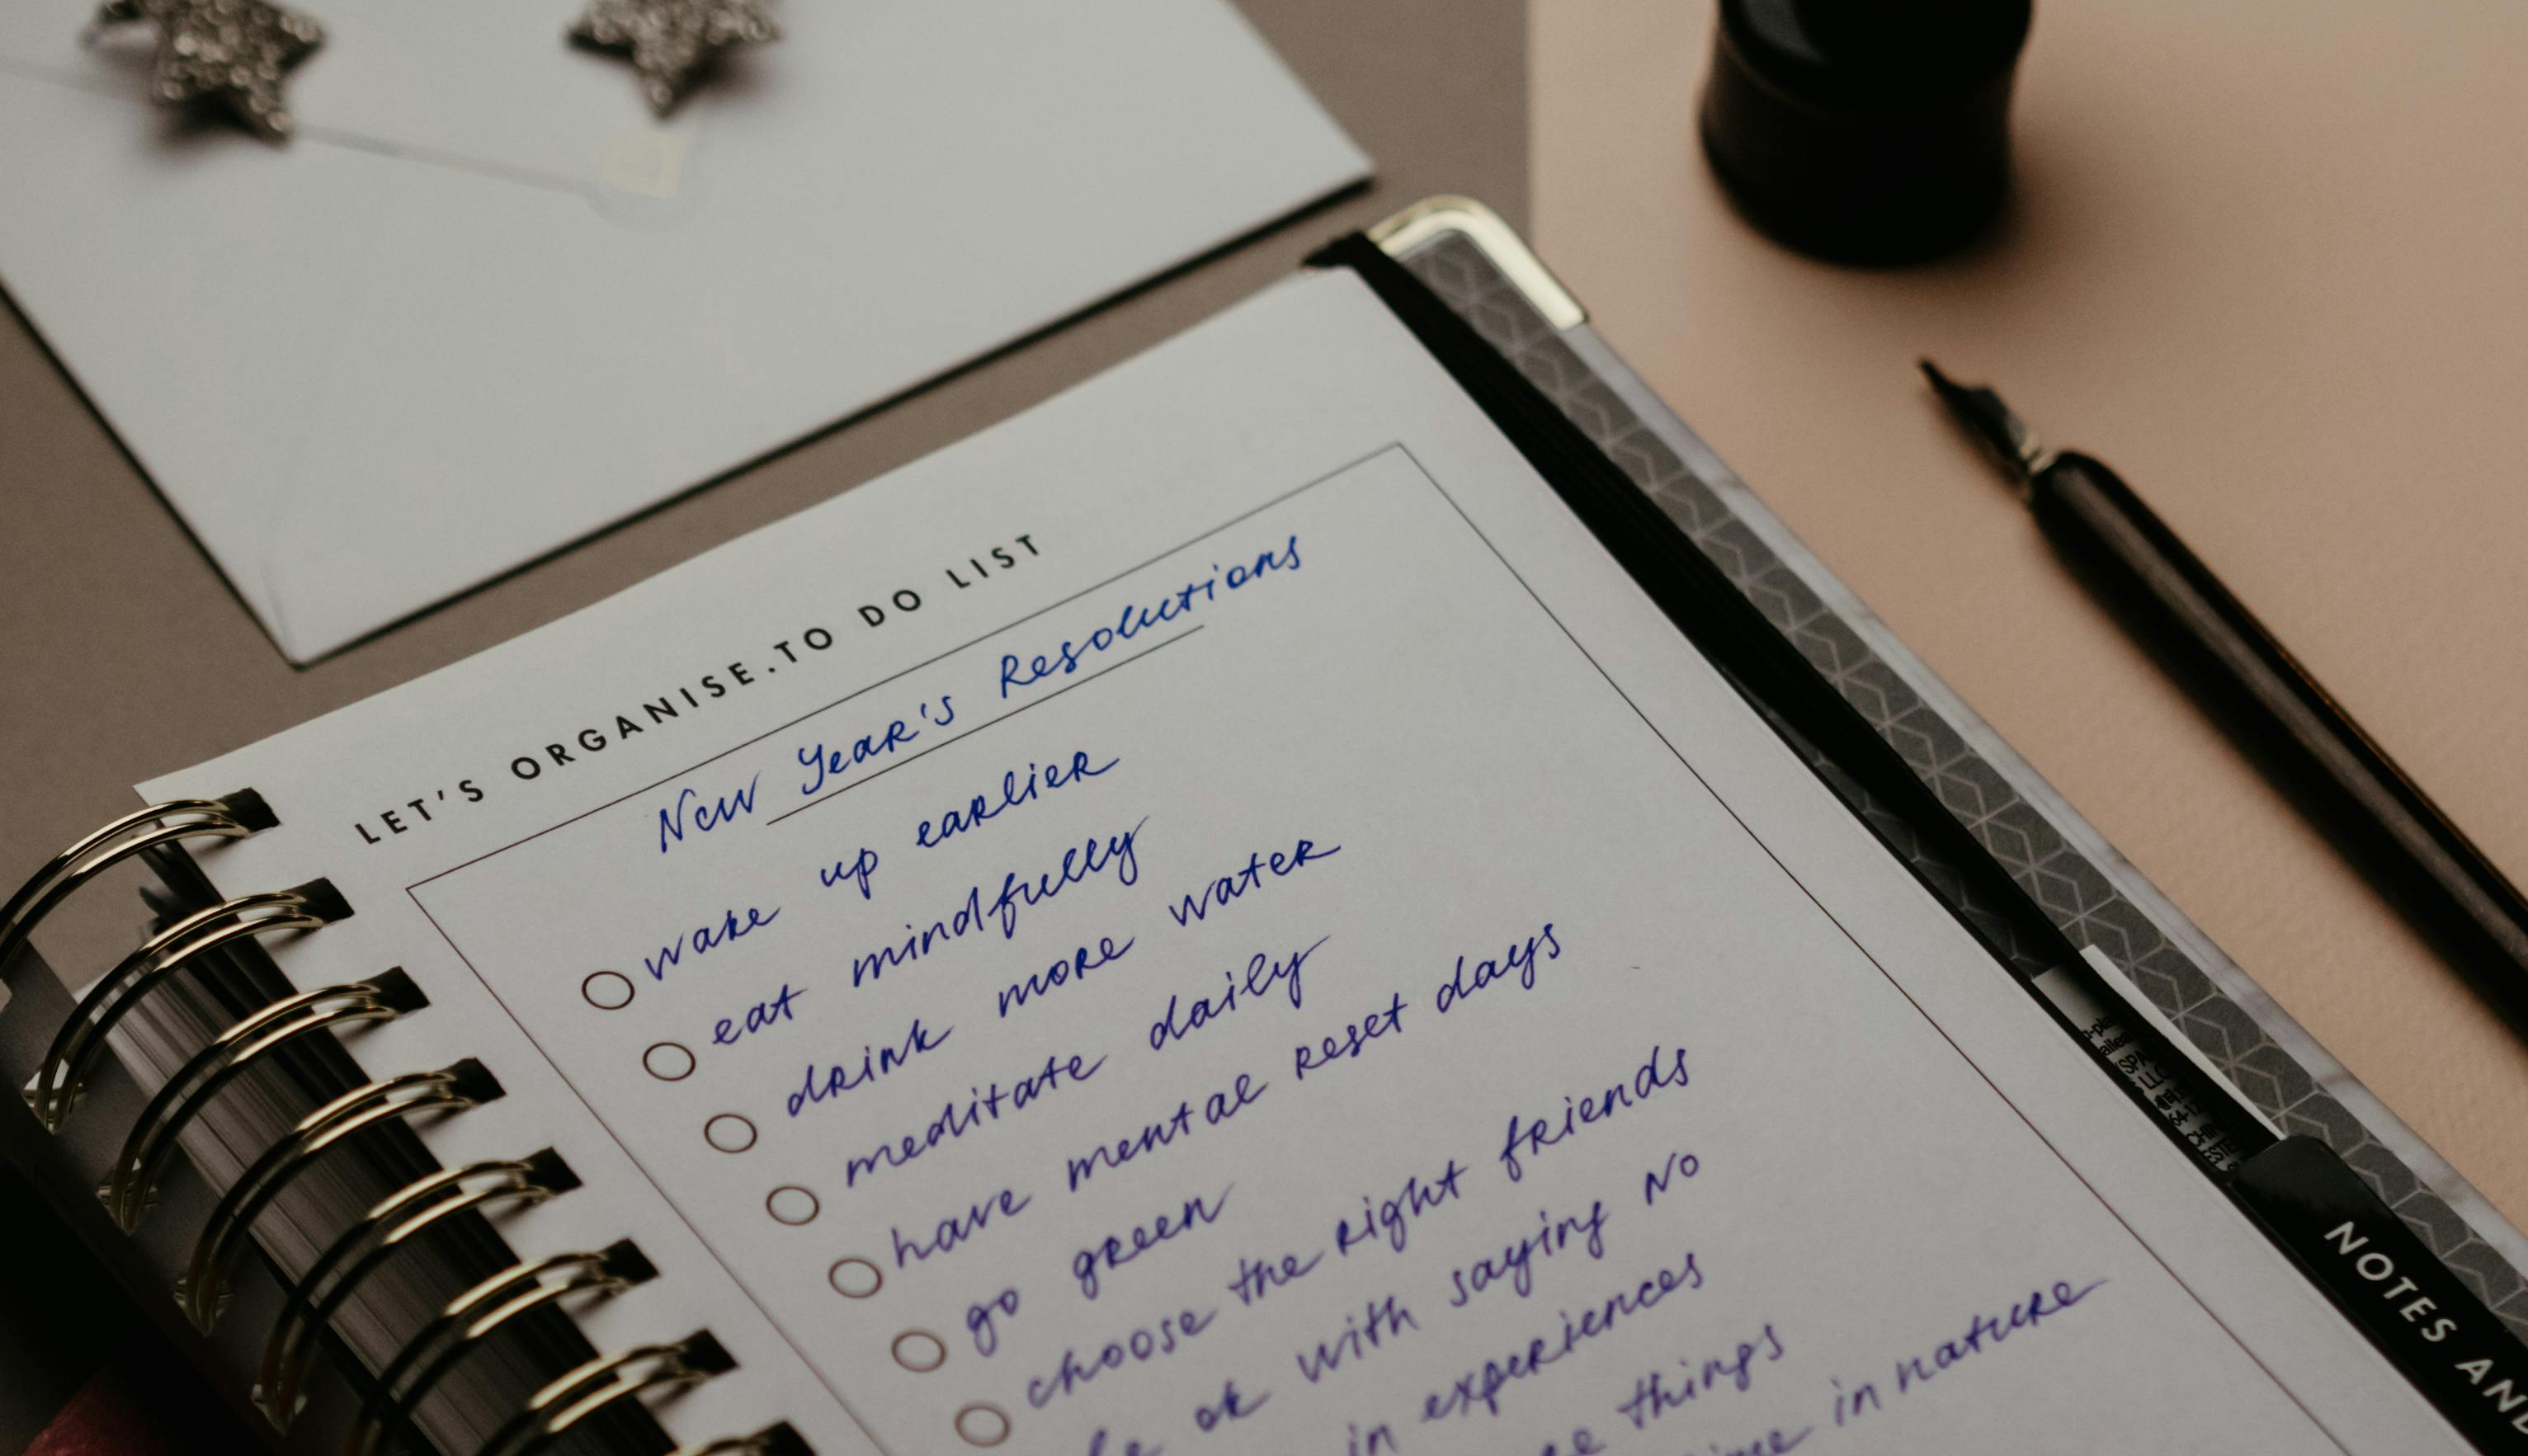 LET'S ORGANISE.TO DO LIST
New Year's Resolutions
wake up earlier
eat mindfully
drink more water
meditate daily
have mental reset days
go green
choose the right friends
be ok with saying NO
in experiences
things
in nature
NOTES AND